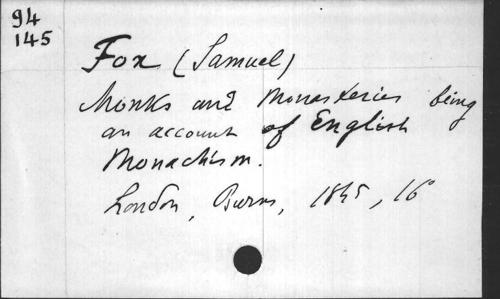 94
145
Fox (Samuel)
Monks and Monasteries being
an account of English
Monachism.
London, Burns, 1845, 16°